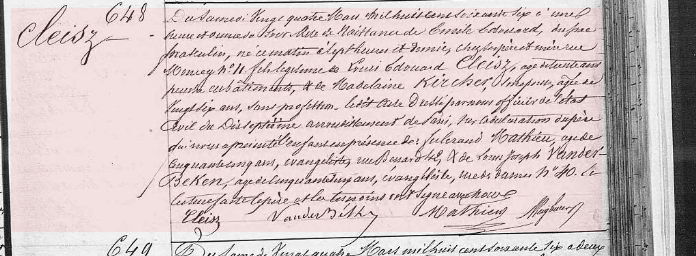 648
Cleisz
Du Samedi Vingt quatre Mars Mil huit cent soixante six à une
heure et demie du Soir Acte de Naissance de Emile Edouard, du sexe
masculin, né ce matin à sept heures et demie, chez ses père et mère rue
N° 11 fils légitime de Louis Edouard Cleisz, âgé de trente ans
peintre en bâtiments, & de Madelaine Kircher, son épouse, âgée de
Vingt six ans, sans profession. Ledit acte Dressé par nous officier de l'état
civil du Dix septième arrondissement de Paris, sur la déclaration du père
qui nous a présenté l'enfant en présence de: Mathieu, âgé de
Cinquante cinq ans, évangéliste, rue Bénard 42, & de Louis Joseph Vander
Beken, âgé de cinquante ans, évangéliste, rue des Dames N° 40. Le
le père et les témoins ont signé avec nous
Cleisz Mathieu
649
Du Samedi Vingt quatre Mars Mil huit cent soixante six à deux